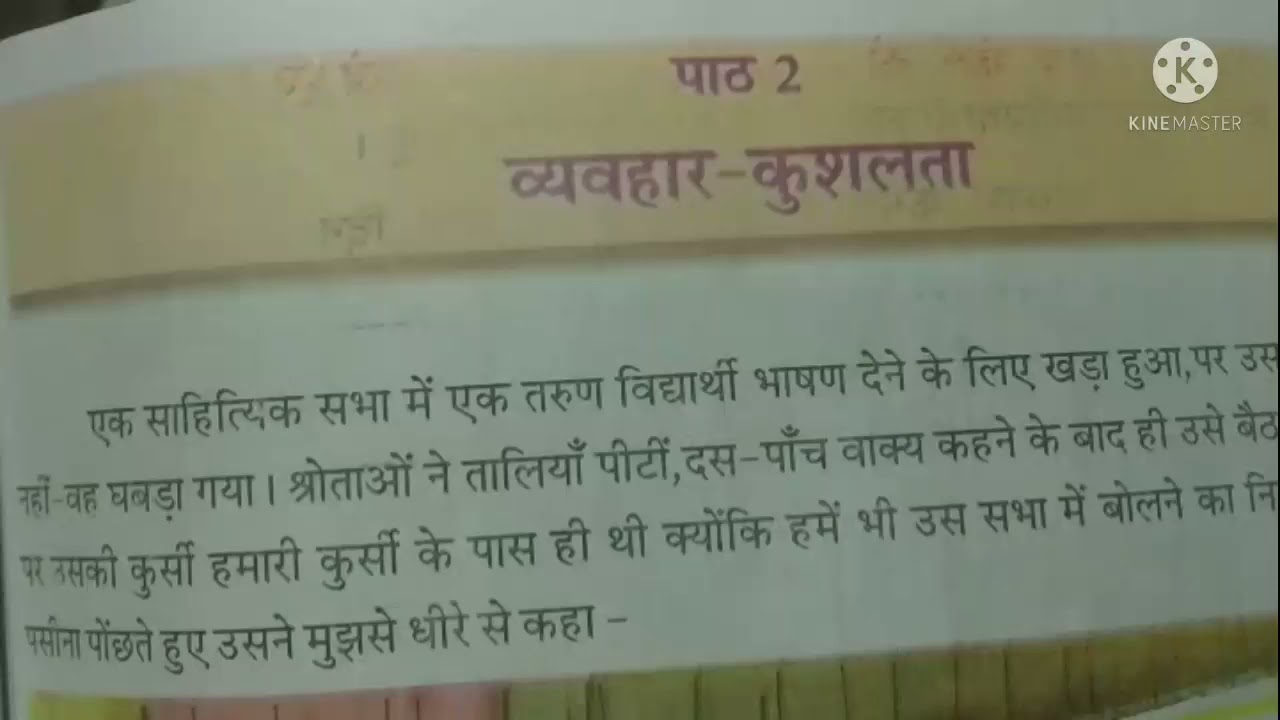 पाठ 2
K
KINEMASTER
व्यवहार-कुशलता
एक साहित्यिक सभा में एक तरुण विद्यार्थी भाषण देने के लिए खड़ा हुआ,पर उस
नहीं-वह घबड़ा गया। श्रोताओं ने तालियाँ पीटीं,दस-पाँच वाक्य कहने के बाद ही उसे बैठ
पर उसकी कुर्सी हमारी कुर्सी के पास ही थी क्योंकि हमें भी उस सभा में बोलने का नि
पसीना पोंछते हुए उसने मुझसे धीरे से कहा -